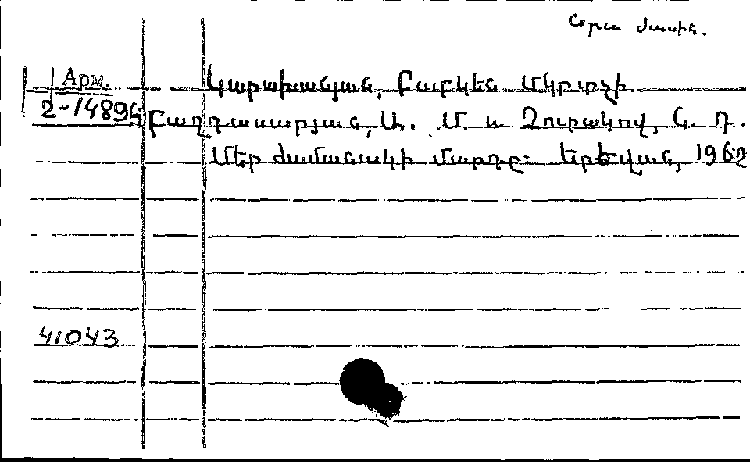 Նրա մասին.
Арм.
2-14894
Կարախանյան, Բաբկեն Մկրտչի
Բաղդասարյան, Ա. Մ. և Չուբակով, Գ. Դ.
Մեր ժամանակի մարդը։ Երևան, 1962
41043